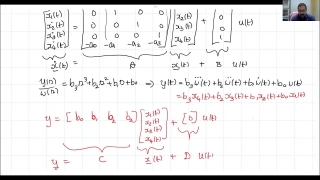 [ẋ₁(t) ẋ₂(t) ẋ₃(t) ẋ₄(t)] = [0 1 0 0; 0 0 1 0; 0 0 0 1; -a₀ -a₁ -a₂ -a₃] [x₁(t) x₂(t) x₃(t) x₄(t)] + [0 0 0 1] u(t)
ẋ(t) = A x(t) + B u(t)
= b₃s³+b₂s²+b₁s+b₀ ⇒ y(t) = b₃
= b₃x₄(t) + b₂x₃(t) + b₁x₂(t) + b₀x₁(t)
y = [b₀ b₁ b₂ b₃] [x₁(t) x₂(t) x₃(t) x₄(t)] + [0] u(t)
y = C x(t) + D u(t)